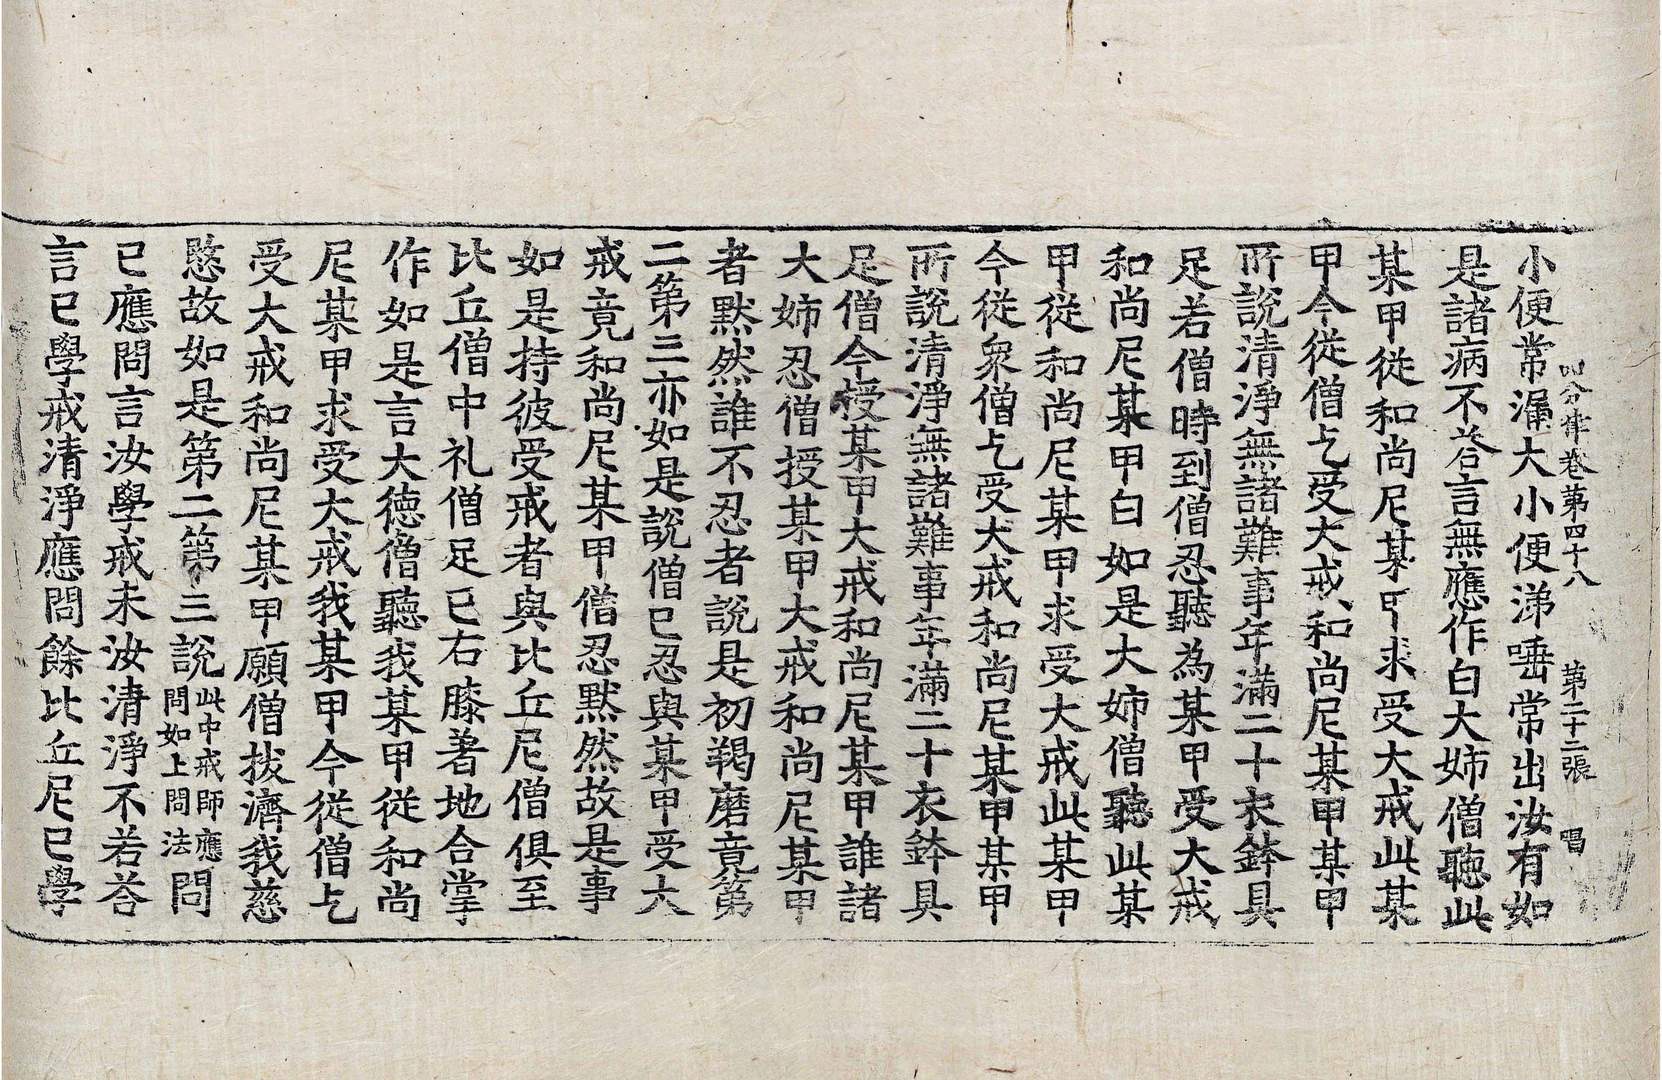 四分律卷第四十八　第二十二張　唱
小便常漏大小便涕唾常出汝有如
是諸病不答言無應作白大姉僧聽此
某甲從和尚尼某甲求受大戒此某
甲今從僧乞受大戒和尚尼某甲某甲
所說清淨無諸難事年滿二十衣鉢具
足若僧時到僧忍聽為某甲受大戒
和尚尼某甲白如是大姉僧聽此某
甲從和尚尼某甲求受大戒此某甲
今從衆僧乞受大戒和尚尼某甲某甲
所說清淨無諸難事年滿二十衣鉢具
足僧今授某甲大戒和尚尼某甲誰諸
大姉忍僧授某甲大戒和尚尼某甲
者默然誰不忍者說是初羯磨竟第
二第三亦如是說僧已忍與某甲受大
戒竟和尚尼某甲僧忍默然故是事
如是持彼受戒者與比丘尼僧俱至
比丘僧中礼僧足已右膝著地合掌
作如是言大德僧聽我某甲從和尚
尼某甲求受大戒我某甲今從僧乞
受大戒和尚尼某甲願僧拔濟我慈
愍故如是第二第三說此中戒師應問如上問法問
已應問言汝學戒未汝清淨不若答
言已學戒清淨應問餘比丘尼已學